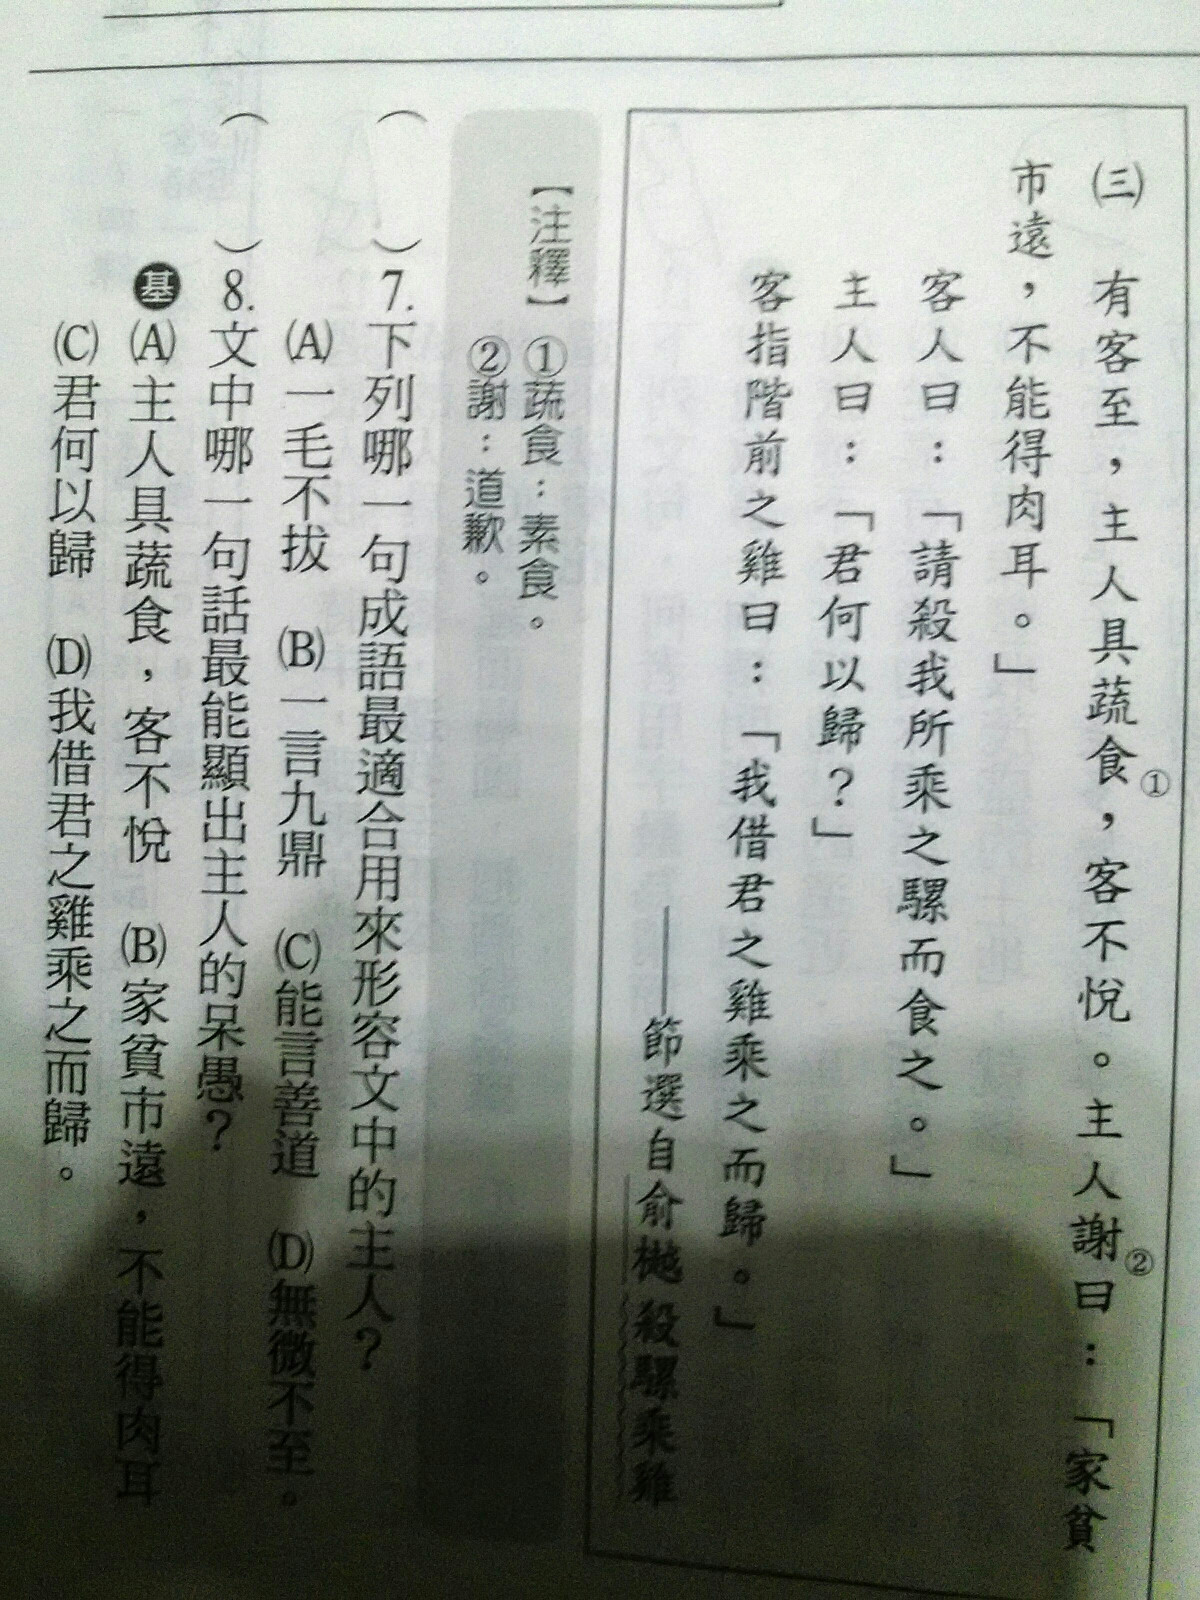 ㈢ 有客至，主人具蔬食①，客不悅。主人謝②曰：「家貧
市遠，不能得肉耳。」
客人曰：「請殺我所乘之騾而食之。」
主人曰：「君何以歸？」
客指階前之雞曰：「我借君之雞乘之而歸。」
——節選自俞樾 殺騾乘雞
【注釋】①蔬食：素食。
②謝：道歉。
（ ）7.下列哪一句成語最適合用來形容文中的主人？
(A)一毛不拔 (B)一言九鼎 (C)能言善道 (D)無微不至。
（ ）8.文中哪一句話最能顯出主人的呆愚？
基 (A)主人具蔬食，客不悅 (B)家貧市遠，不能得肉耳
(C)君何以歸 (D)我借君之雞乘之而歸。